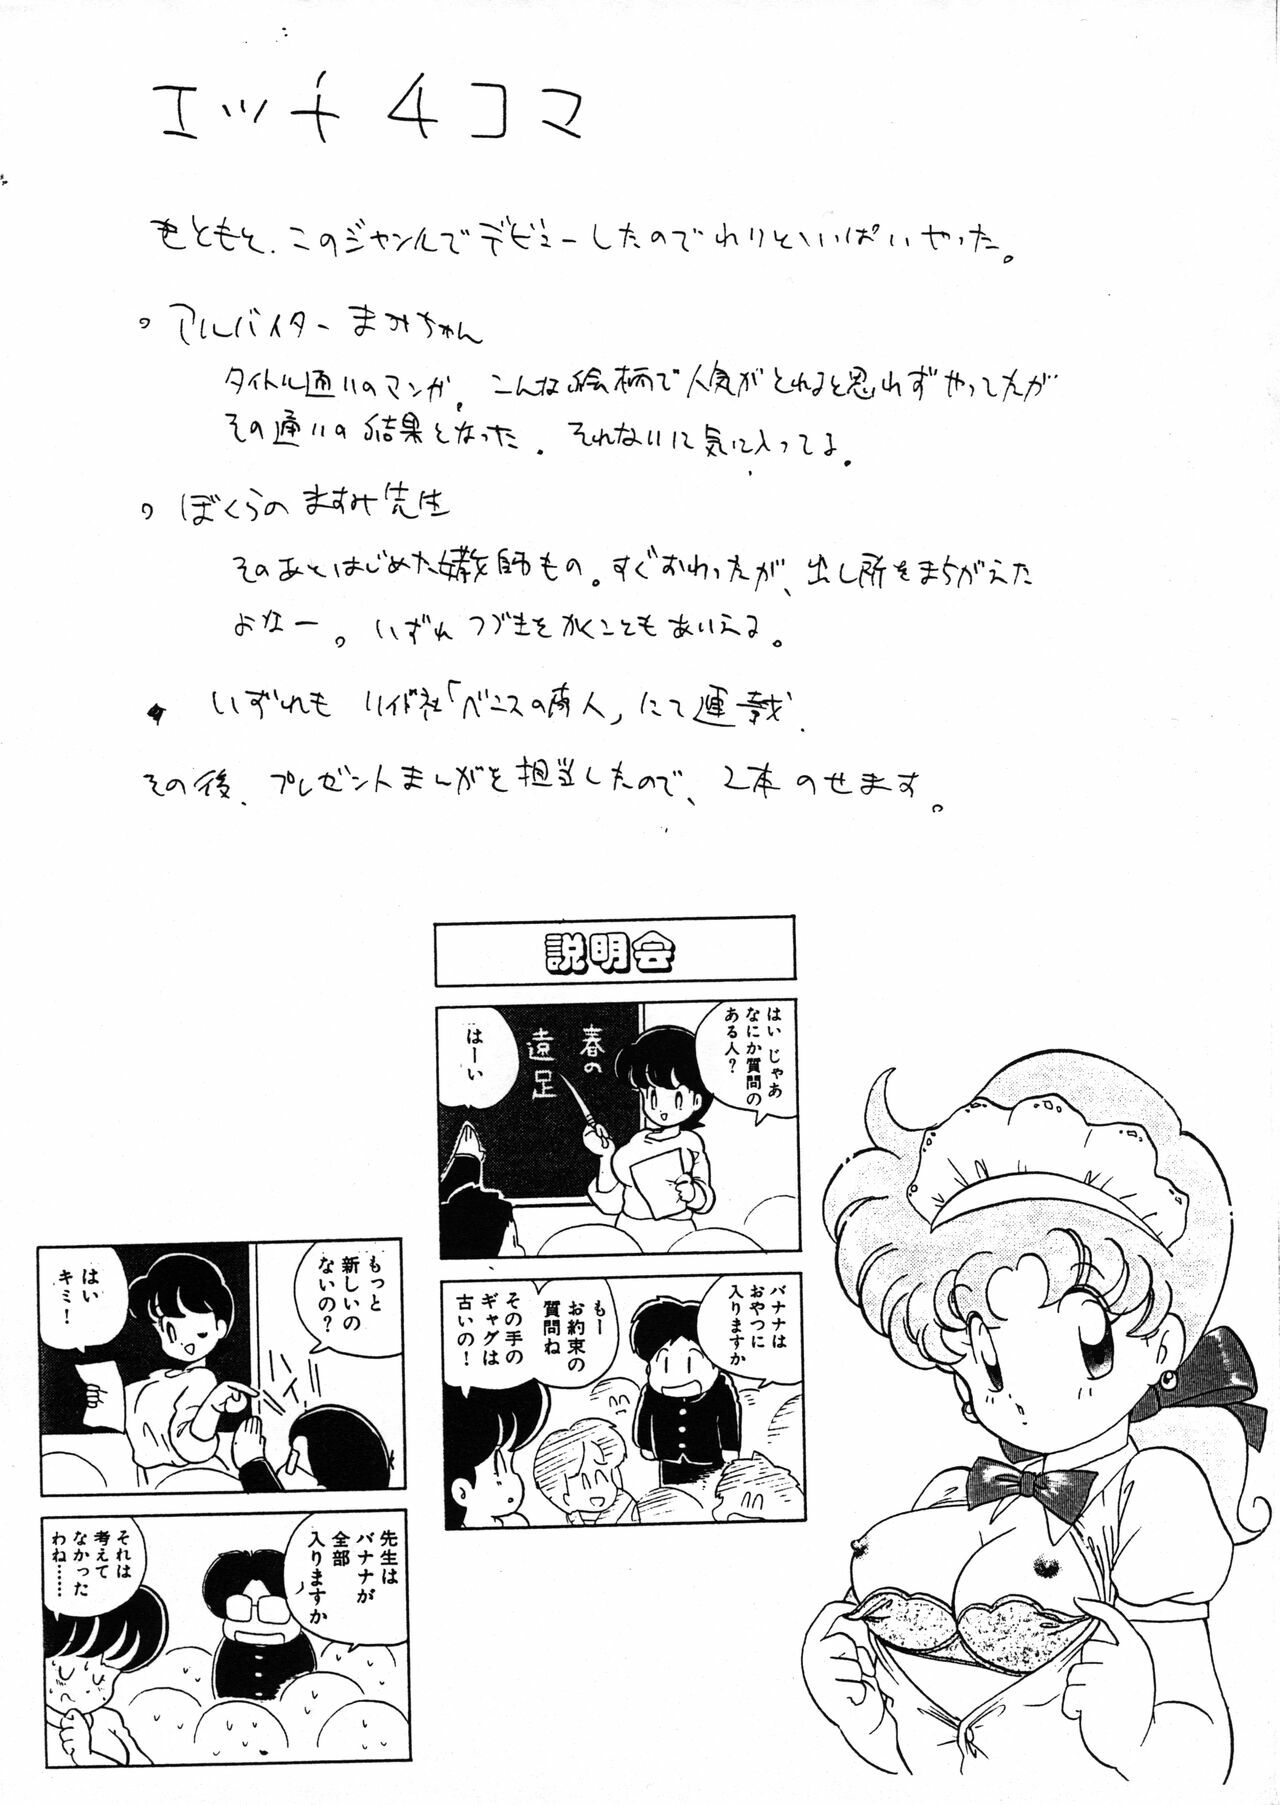 エッチ4コマ
もともと、このジャンルでデビューしたのでわりといっぱいやった。
。アルバイターまみちゃん
タイトル通りのマンガ。こんな絵柄で人気がとれると思れずやってたが
その通りの結果となった。それないに気に入ってる。
。ぼくらのますみ先生
そのあとはじめた教師もの。すぐおわったが、出し所をまちがえた
よなー。いずれつづきをかくこともありえる。
いずれも リイド社「ベニスの商人」にて連載.
その後、プレゼントまんがを担当したので、2本のせます。
説明会
はい じゃあ
なにか質問の
ある人?
春の
遠足
はーい
バナナは
おやつに
入りますか
もー
お約束の
質問ね
その手の
ギャグは
古いの!
もっと
新しいの
ないの?
ハイ
はい
キミ!
先生は
バナナが
全部
入りますか
それは
考えて
なかった
わね……